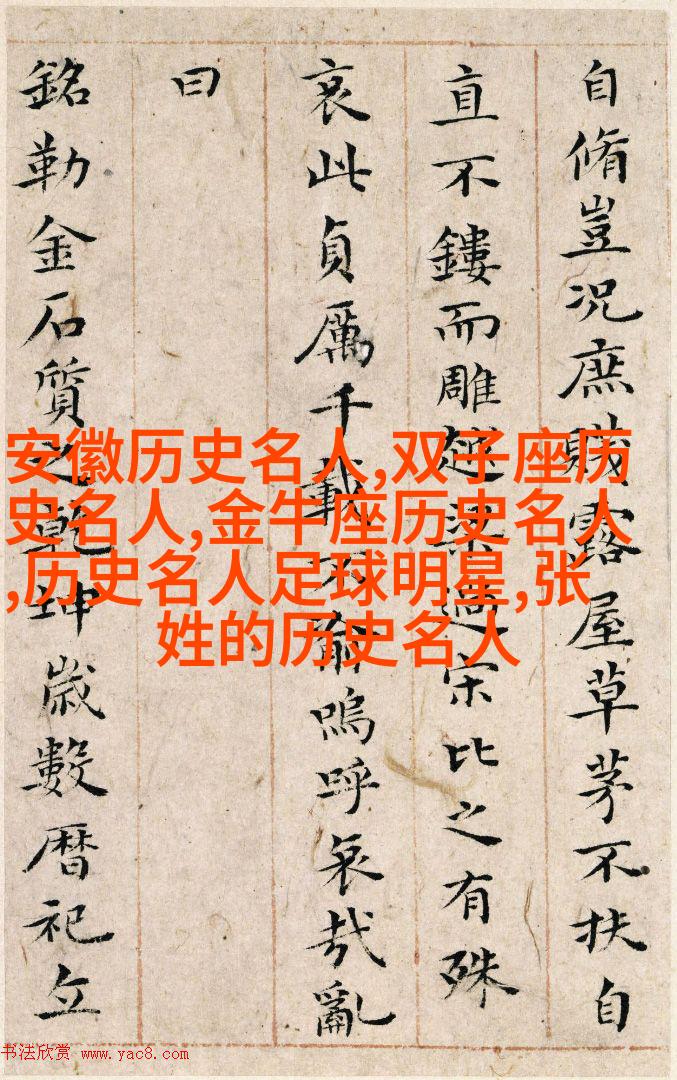 自脩豈況庶賤露屋草茅不扶自
直不鏤而雕越梁過宋比之有殊
哀此貞厲千載不渝嗚呼哀哉亂
曰
銘勒金石質之乾坤歲數曆祀立
安徽历史名人,双子座历
史名人,金牛座历史名人
,历史名人足球明星,张
姓的历史名人
书法欣赏 www.yac8.com